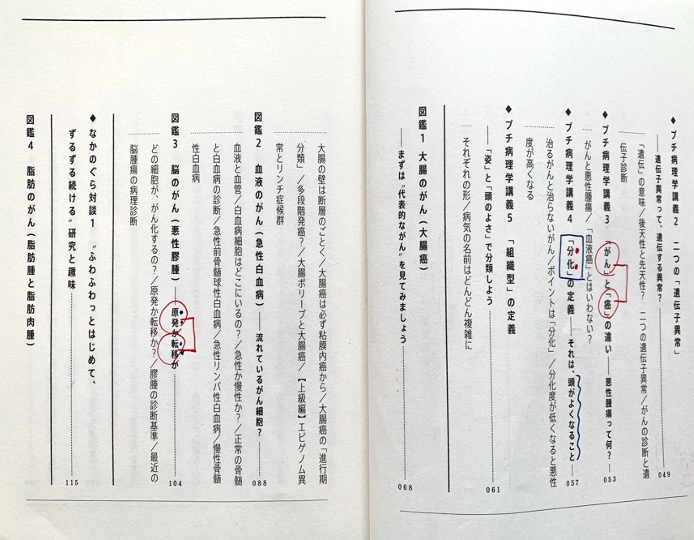 ◆プチ病理学講義2 二つの「遺伝子異常」
――遺伝子異常って、遺伝する異常? 049
「遺伝」の意味/後天性と先天性? 二つの遺伝子異常/がんの診断と遺
伝子診断
◆プチ病理学講義3 「がん」と「癌」の違い――悪性腫瘍って何? 053
がんと悪性腫瘍/「血液癌」とはいわない?
◆プチ病理学講義4 「分化」の定義――それは、頭がよくなること 057
治るがんと治らないがん/ポイントは「分化」/分化度が低くなると悪性
度が高くなる
◆プチ病理学講義5 「組織型」の定義
――「姿」と「頭のよさ」で分類しよう 061
それぞれの形/病気の名前はどんどん複雑に
図鑑1 大腸のがん(大腸癌)
――まずは“代表的ながん”を見てみましょう 068
大腸の壁は断層のごとく/大腸癌は必ず粘膜内癌から/大腸癌の「進行期
分類」/多段階発癌?/大腸ポリープと大腸癌/【上級編】エピゲノム異
常とリンチ症候群
図鑑2 血液のがん(急性白血病)――流れているがん細胞? 088
血液と血管/白血病細胞はどこにいるの?/急性か慢性か?/正常の骨髄
と白血病の診断/急性前骨髄球性白血病/急性リンパ性白血病/慢性骨髄
性白血病
図鑑3 脳のがん(悪性膠腫)――原発か転移か 104
どの細胞が、がん化するの?/原発か転移か?/膠腫の診断基準/最近の
脳腫瘍の病理診断
◆なかのぐら対談1 “ふわふわっとはじめて、
ずるずる続ける”研究と趣味 115
図鑑4 脂肪のがん(脂肪腫と脂肪肉腫)